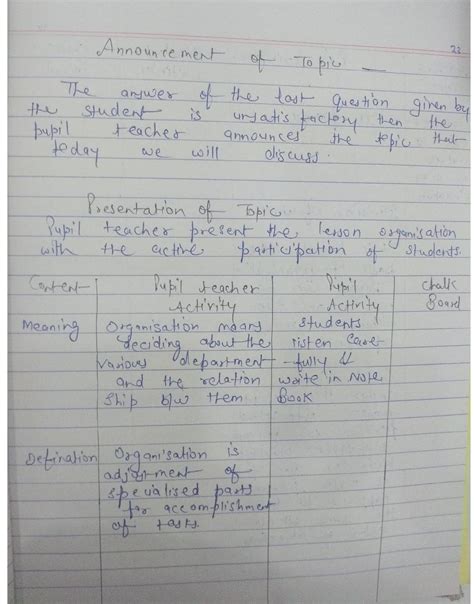 22
Announcement of Topic
The answer of the last question given by
the student is unsatisfactory then the
pupil teacher announces the topic that
today we will discuss.
Presentation of Topic
Pupil teacher present the lesson organisation
with the active participation of students
Content Pupil teacher Activity Pupil Activity Chalk Board
Meaning Organisation means students
deciding about the listen care
various department -fully &
and the relation write in Note
ship b/w them Book
Defination Organisation is
adjustment of
specialised parts
for accomplishment
of tasks.